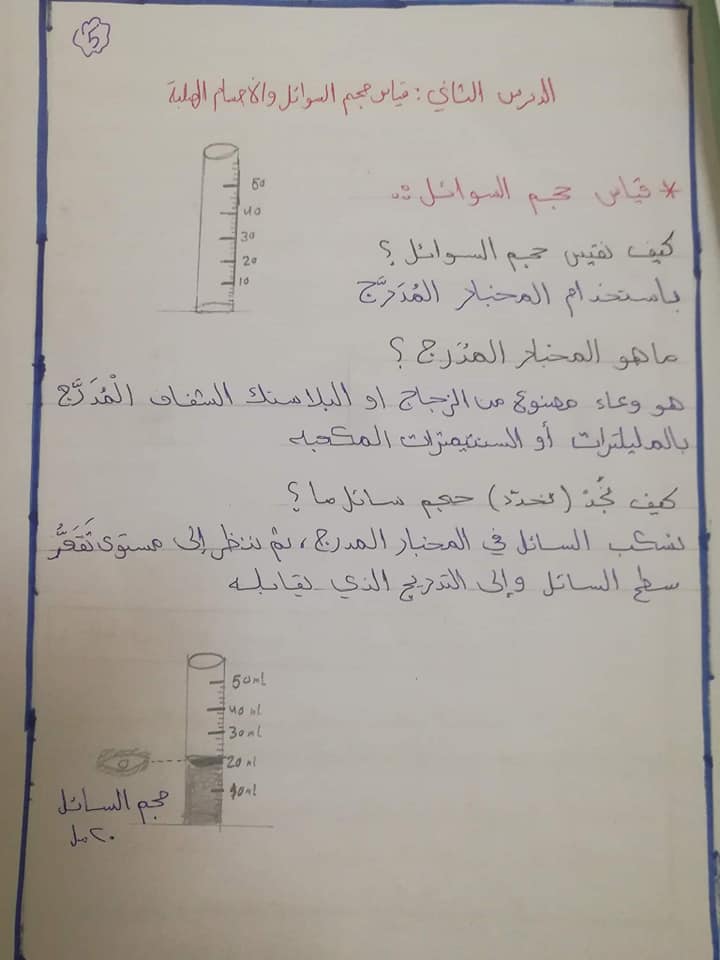 5
الدرس الثاني : قياس حجم السوائل والأجسام الصلبة
* قياس حجم السوائل :.
50
40
30
20
10
كيف نقيس حجم السوائل ؟
باستخدام المخبار المُدَرَّج
ماهو المخبار المدرج ؟
هو وعاء مصنوع من الزجاج او البلاستك الشفاف الْمُدَرَّج
بالمليلترات أو السنتيمترات المكعبه
كيف نُجدْ (نحدد) حجم سائل ما ؟
نسكب السائل في المخبار المدرج ، ثم ننظر إلى مستوى تَقَعُّر
سطح السائل وإلى التدريج الذي يقابله
50 ml
40 ml
30 ml
20 ml
10 ml
حجم السائل
٢٠ مل